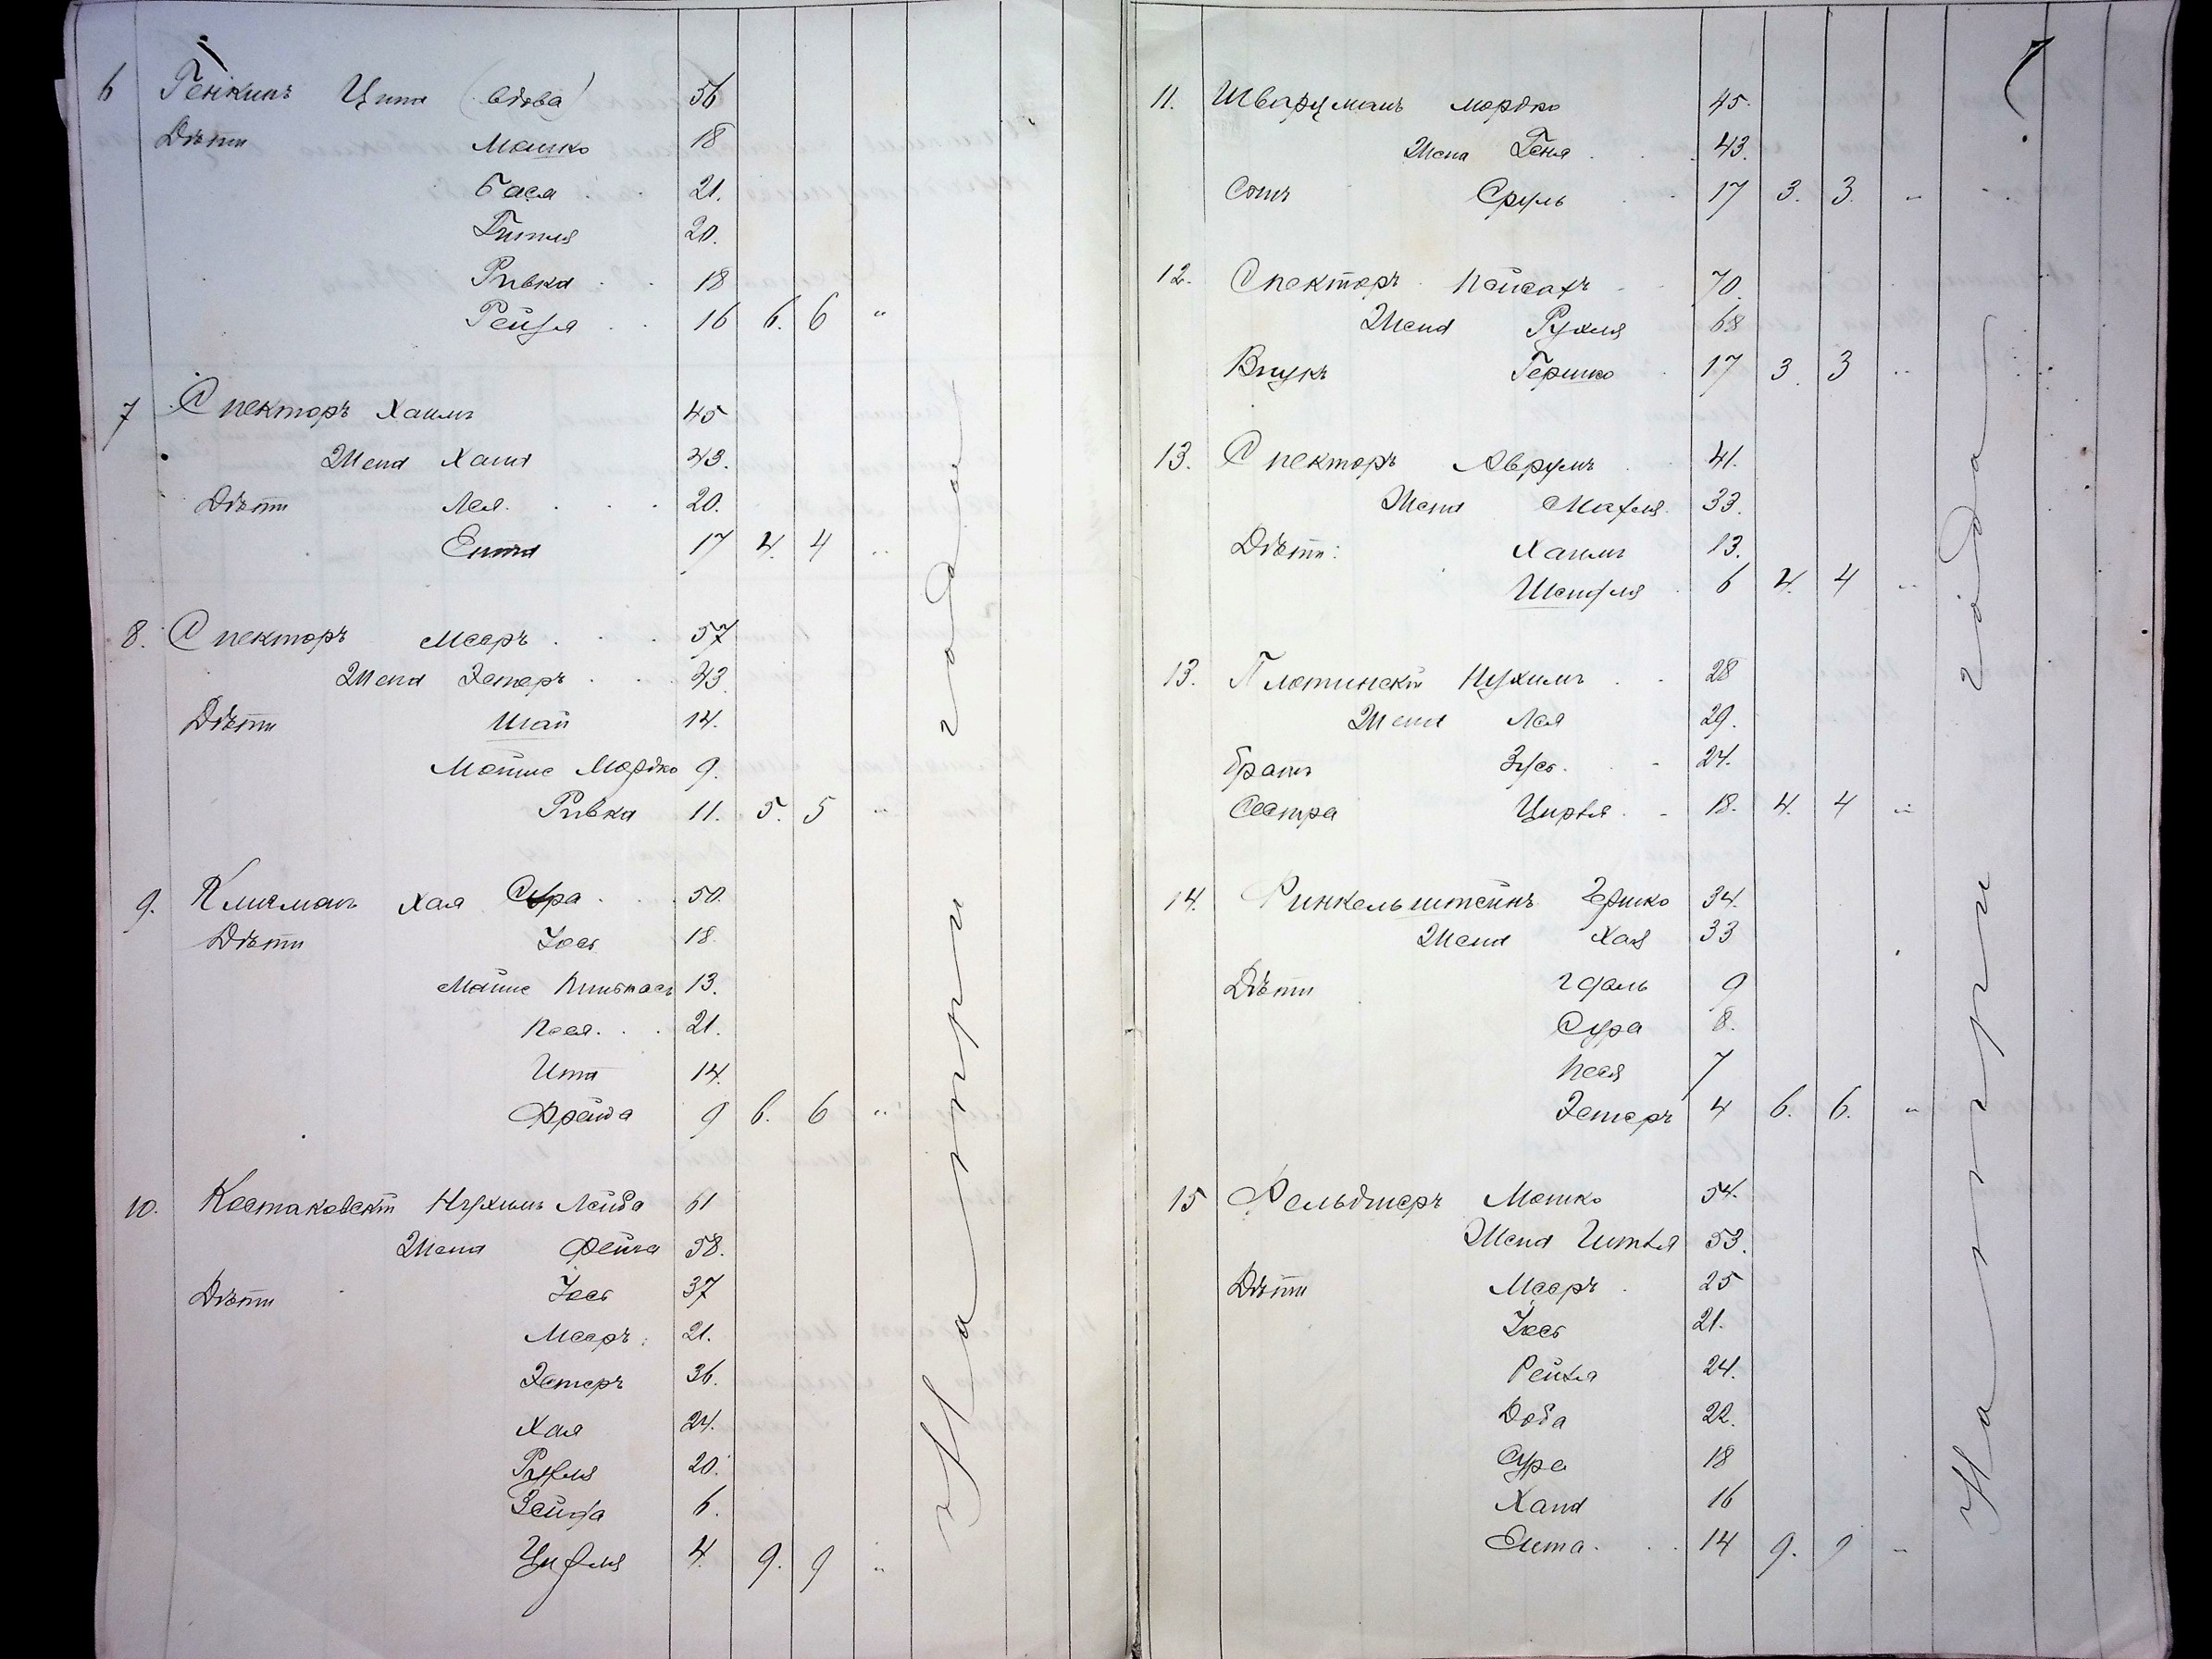 6 Генкинъ Ципа (вдова) 56
Дѣти Мошко 18
Бася 21.
Гитля 20.
Ривка 18
Рейзя 16 6. 6 "
7 Спекторъ Хаимъ 45
Жена Хана 43.
Дѣти Лея 20.
Ента 17 4. 4 "
8. Спекторъ Мееръ 57
Жена Эстеръ 43
Дѣти Шая 14.
Мойше Мордко 9.
Ривка 11. 5. 5 "
9. Клигманъ Хая Сура 50.
Дѣти Іось 18.
Мойше Пинькасъ 13.
Песя 21.
Ита 14.
Фрейда 9 6. 6 "
10. Костаковскій Нухимъ Лейба 61
Жена Фейга 58.
Дѣти Іось 37
Мееръ 21.
Эстеръ 36.
Хая 24.
Рухля 20.
Зейда 6.
4. 9. 9 "
На три года
7
11. Шварцманъ Мордко 45.
Жена Геня 43.
Сынъ Сруль 17 3. 3. "
12. Спекторъ Пейсахъ 70.
Жена Рухля 68
Внукъ Гершко 17 3. 3 "
13. Спекторъ Аврумъ 41.
Жена Махля 33.
Дѣти: Хаимъ 13.
Шейндля 6 4. 4 "
13. Плотинскій Нухимъ 28
Жена Лея 29.
Братъ Зусь 24.
Сестра Цирля 18. 4. 4 "
14. Финкельштейнъ Гершко 34.
Жена Хая 33
Дѣти Гдаль 9
Сура 8.
Песя 7
Эстеръ 4 6. 6. "
15 Фельдшеръ Мошко 54.
Жена Гитля 53.
Дѣти Мееръ 25
Іось 21.
Рейзя 24.
Доба 22.
Сура 18
Хана 16
Ента 14 9. 9 "
На три года